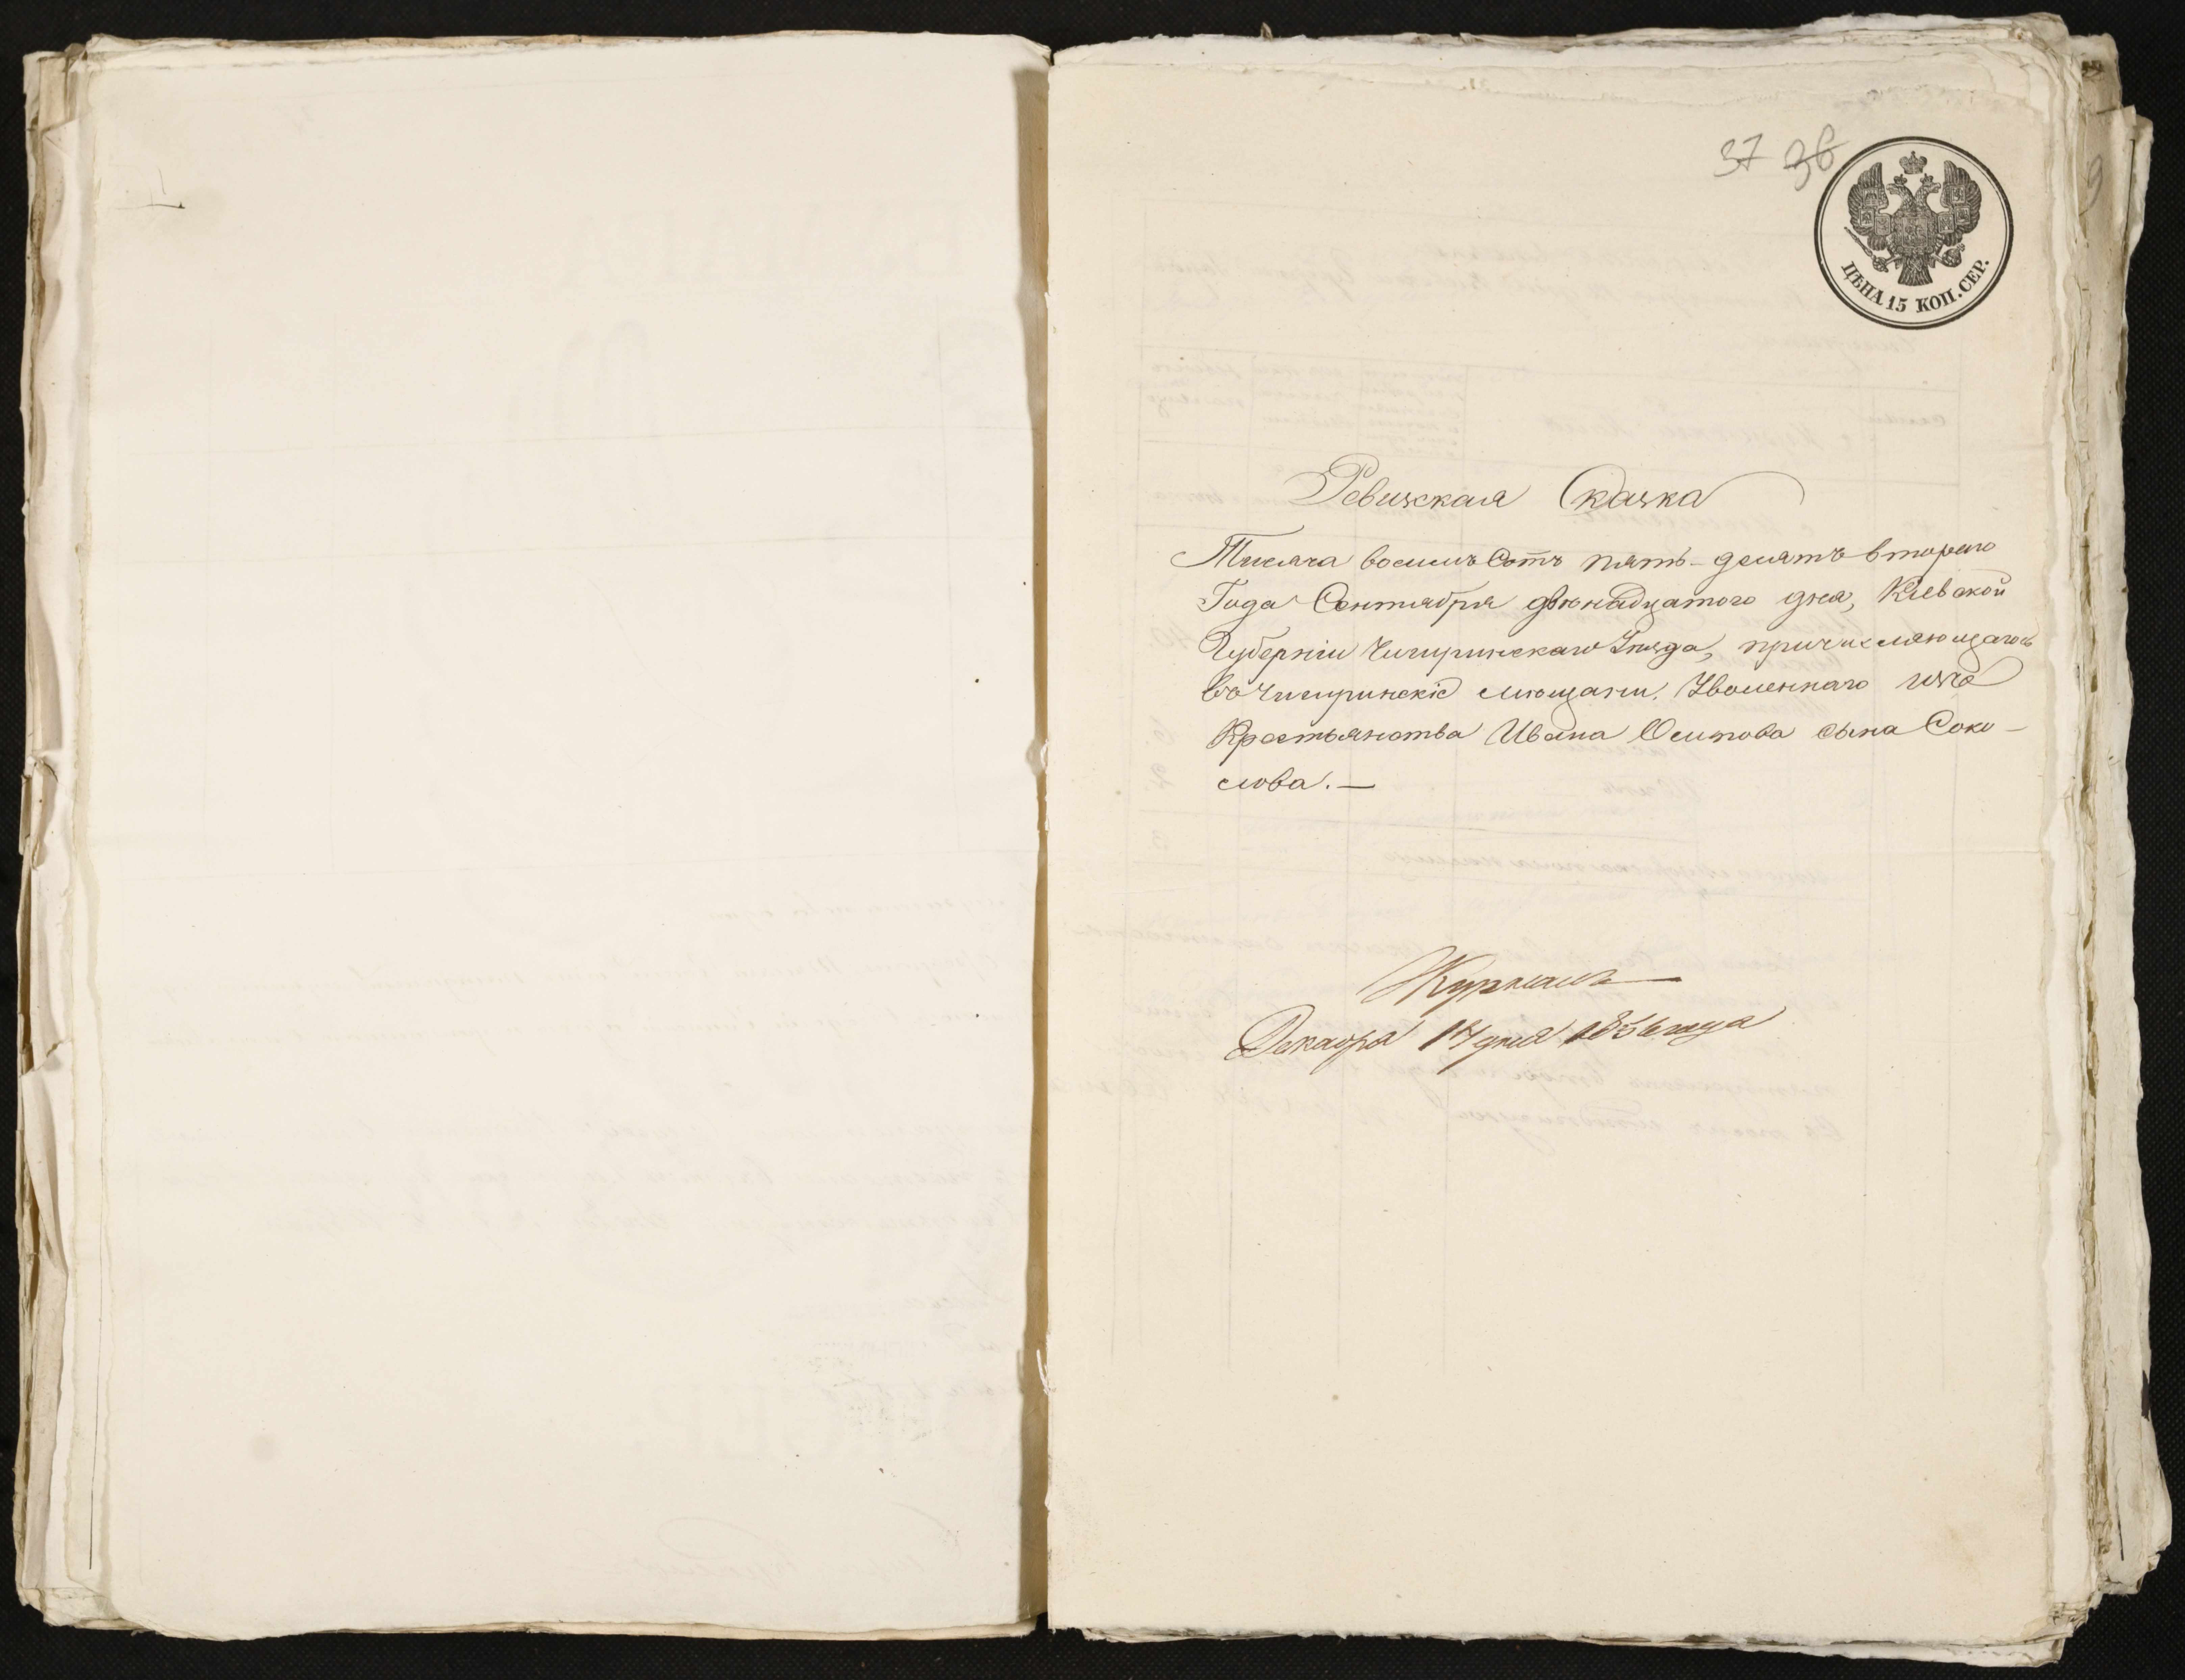 37 36
ЦѢНА 15 КОП. СЕР.
Ревизская Сказка
Тисяча восемь Сотъ пять-десятъ втораго
Года Сентября двѣнадцатого дня, Кіевской
Губерніи Чигиринскаго Уѣзда, причисляющагось
въ Чигиринскіе мѣщани, Уволеннаго изъ
Крестьянства Ивана Осипова сына Соко-
лова.—
Журналъ
Декабря 14 дня года